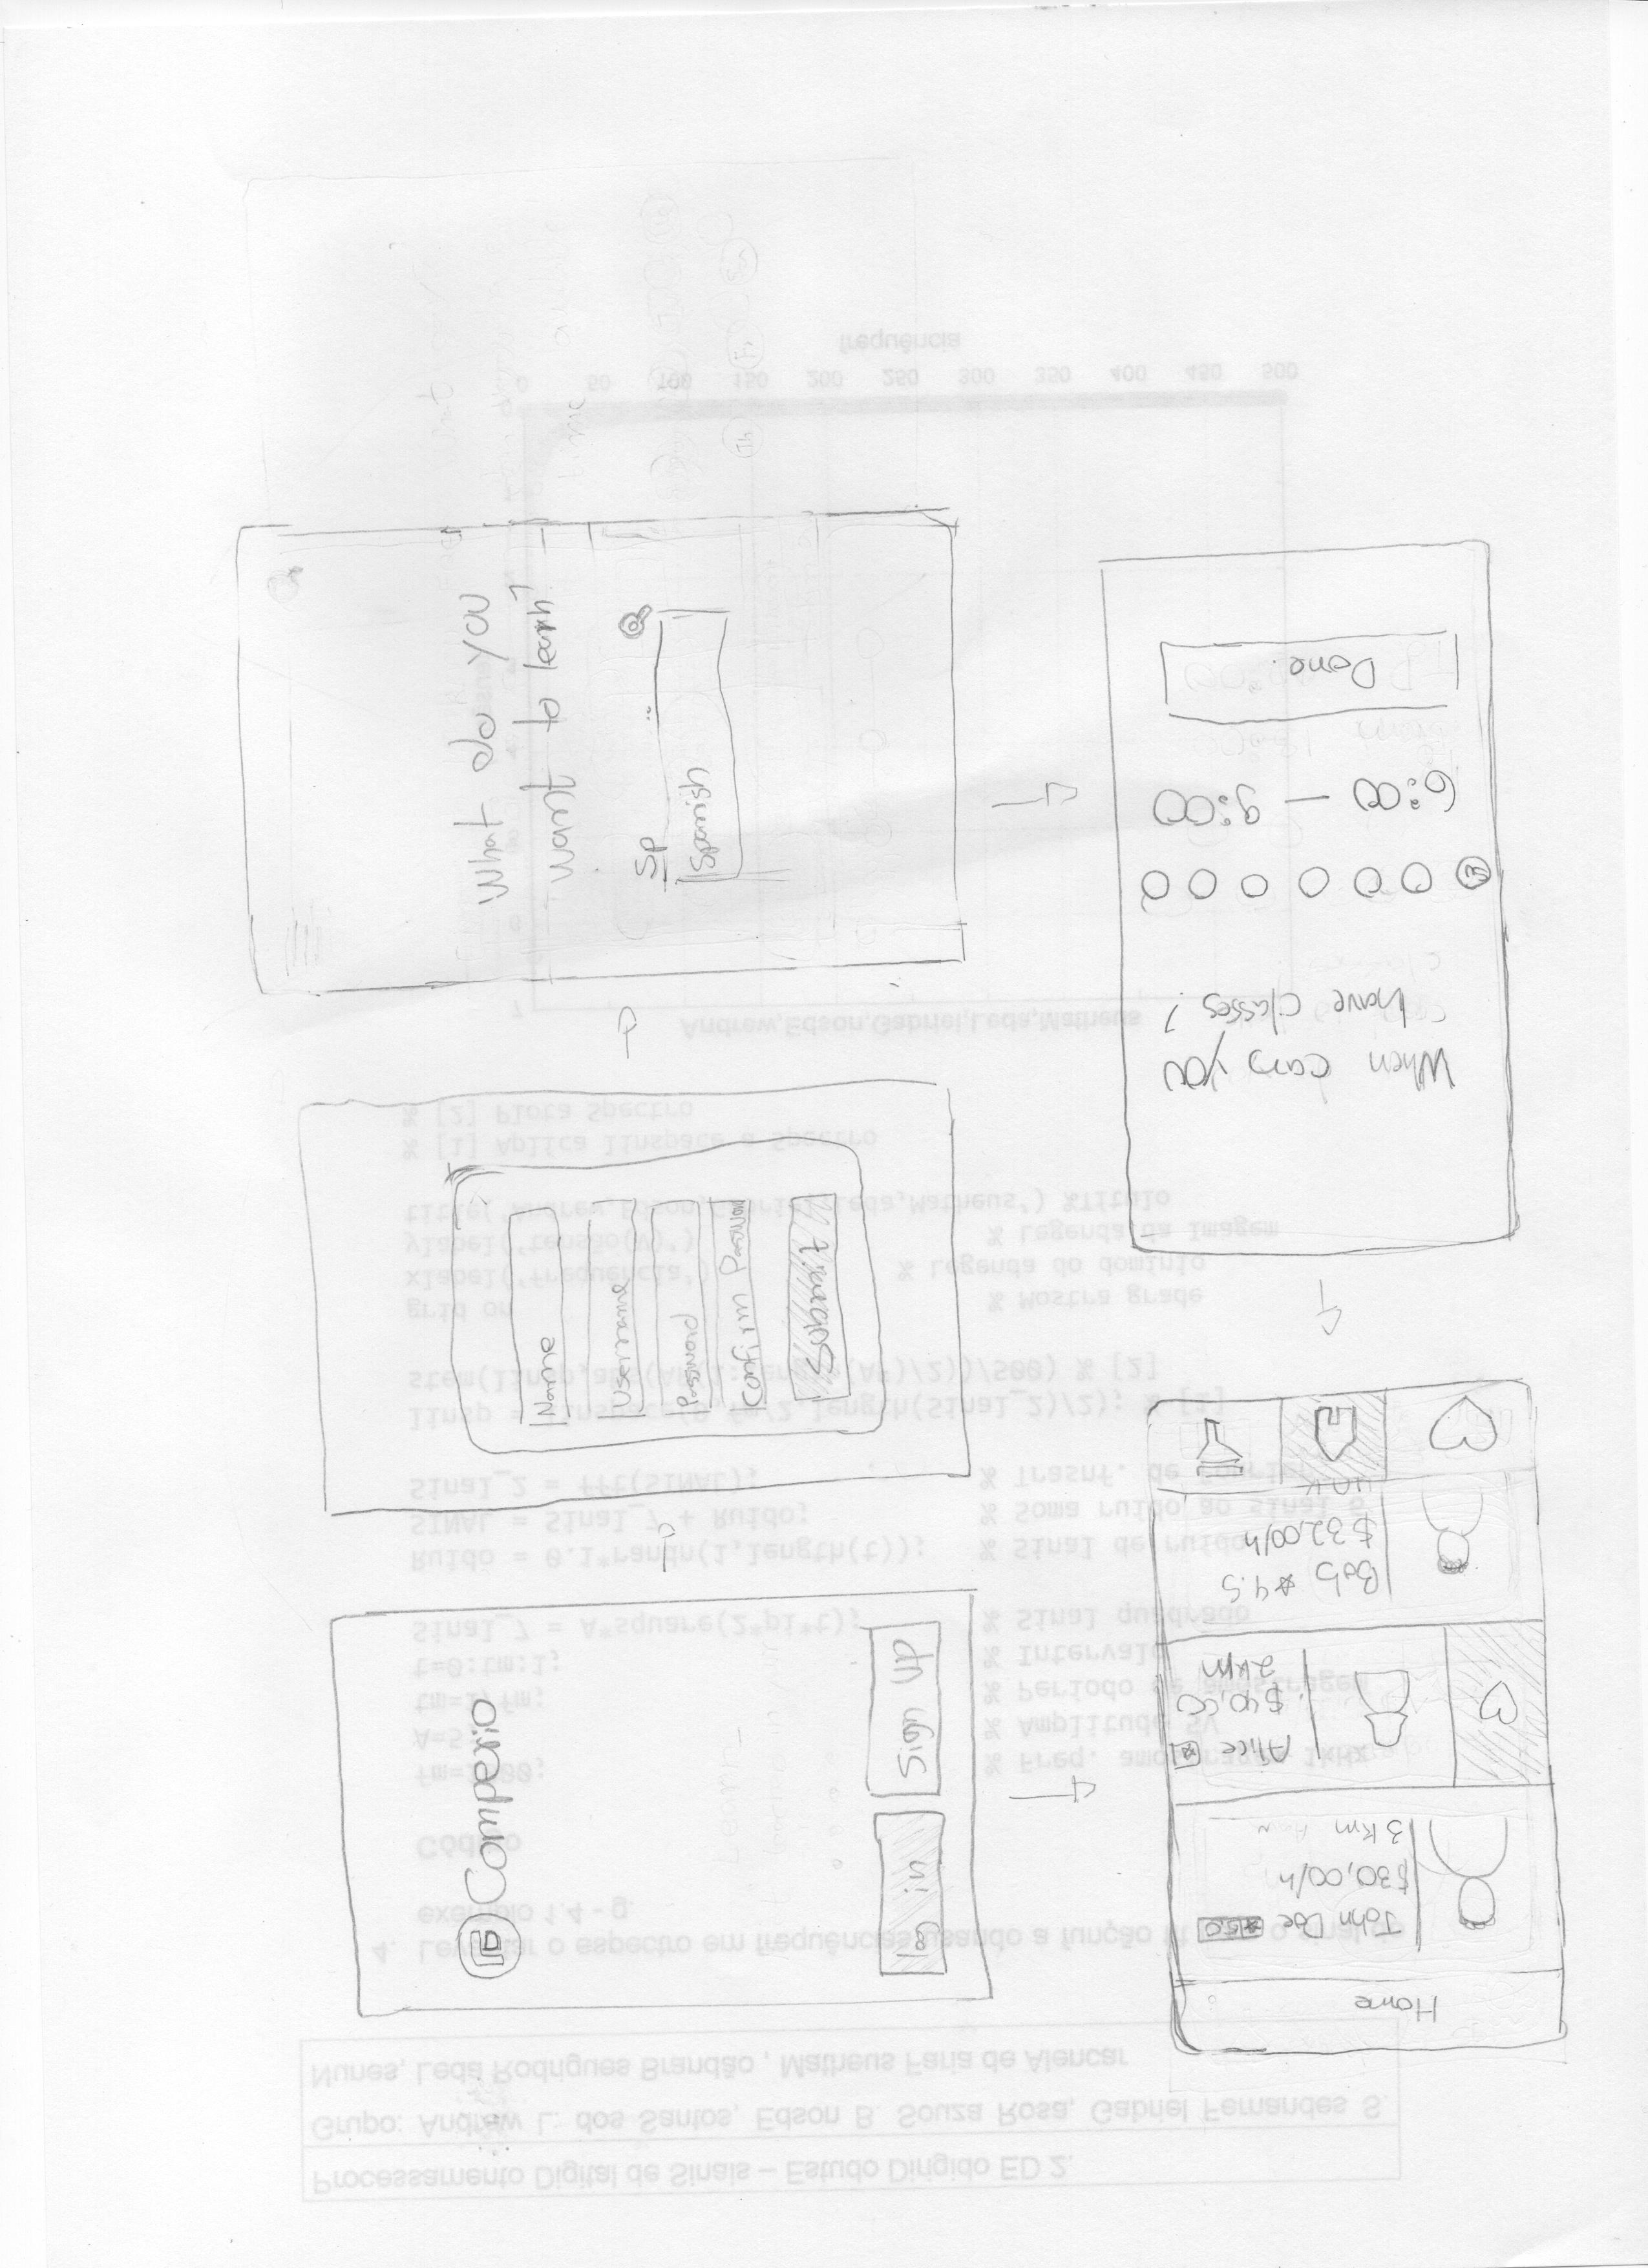 Comperio
log in
Sign up
Name
Username
Password
Confirm Password
Submit
What do you
want to learn?
Sp
Spanish
When can you
have classes?
M
6:00 — 9:00
Done
Home
John Doe ★5.0
$30,00/h
3 km
Alice ★
$40,00
2 km
Bob ★ 4.5
$32,00/h
Processamento Digital de Sinais – Estudo Dirigido ED 2.
Grupo: Andrew L. dos Santos, Edson B. Souza Rosa, Gabriel Fernandes S.
Nunes, Leda Rodrigues Brandão , Matheus Faria de Alencar
4. Levantar o espectro em frequências usando a função
exemplo 1.4 - g.
Código
% Freq. amostragem 1kHz
A=5 % Amplitude 5V
tm=1/fm; % Período de amostragem
t=0:tm:1; % Intervalo
Sinal_7 = A*square(2*pi*t); % Sinal quadrado
Ruido = 0.1*randn(1,length(t)); % Sinal de ruido
SINAL = Sinal_7 + Ruido; % Soma ruido ao sinal
Sinal_2 = fft(SINAL); % Trasnf. de Fourier
grid on % Mostra grade
xlabel('frequencia') % Legenda do dominio
ylabel('tensão(V)') % Legenda da imagem
title('Andrew,Edson,Gabriel,Leda,Matheus') %Titulo
% [1] Aplica linspace a Spectro
% [2] Plota Spectro
Andrew,Edson,Gabriel,Leda,Matheus
0 50 100 150 200 250 300 350 400 450 500
frequência